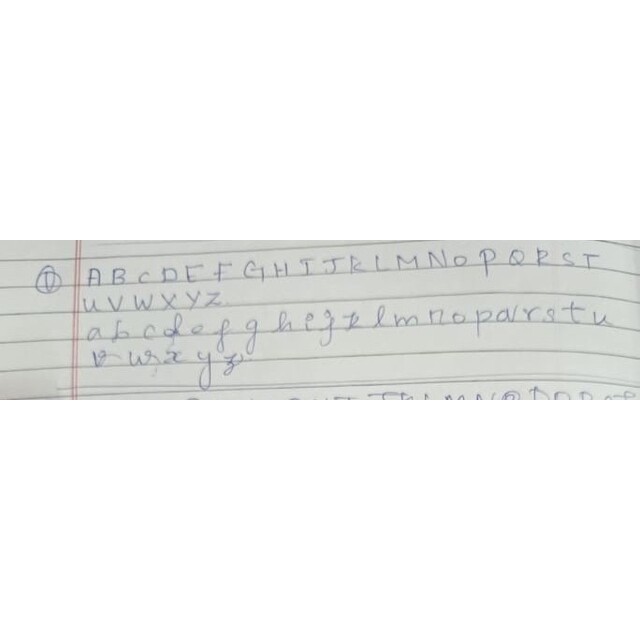 ① A B C D E F G H I J K L M N O P Q R S T
U V W X Y Z
a b c d e f g h i j k l m n o p q r s t u
v w x y z